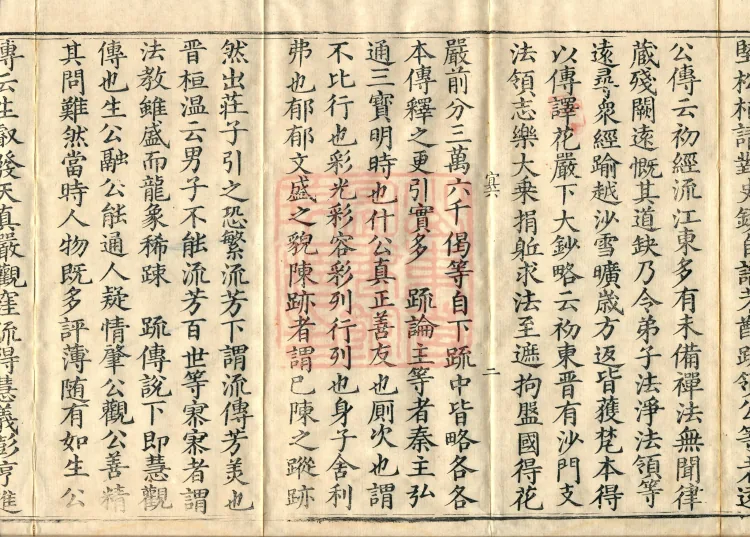 公傳云初經流江東多有未備禪法無聞律
蔵殘闕遠慨其道缺乃令弟子法淨法領等
遠尋衆經踰越沙雪曠歲方返皆獲梵本得
以傳譯花嚴下大鈔略云初東晋有沙門支
法領志樂大乗捐躯求法至遮拘盤國得花
二
嚴前分三萬六千偈等自下䟽中皆略各各
本傳釋之更引實多 䟽論主等者秦王弘
通三寶明時也什公真正善友也厠次也謂
不比行也彩光彩容彩列行列也身子舍利
弗也郁郁文盛之貌陳跡者謂已陳之蹤跡
然出荘子引之恐繁流芳下謂流傳芳羙也
晋桓温云男子不能流芳百世等寮寮者謂
法教雖盛而龍象稀踈 䟽傳説下即慧觀
傳也生公融公能通人疑情肇公觀公善精
其問難然當時人物既多評薄随有如生公
傳云生叡發天真嚴觀窪流得慧義彭亨進